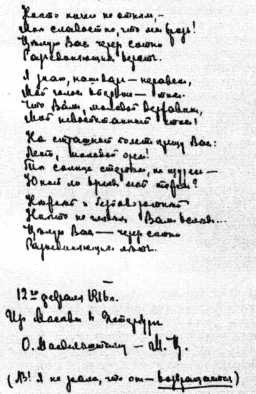 Никто ничего не отнял, –
Мне сладостно, что мы врозь!
Целую Вас через сотни
Разъединяющих верст.
Я знаю, наш дар – неравен,
Мой голос впервые – тих.
Что Вам, молодой Державин,
Мой невоспитанный стих!
На страшный полет крещу Вас:
Лети, молодой орел!
Ты солнце стерпел, не щурясь –
Юный ли взгляд мой тяжел?
Нежней и бесповоротней
Никто не глядел Вам вслед...
Целую Вас – через сотни
Разъединяющих лет.
12го февраля 1916 г.
Из Москвы в Петербург
О. Мандельштаму – М. Ц.
(NB! Я не знала, что он – возвращается)